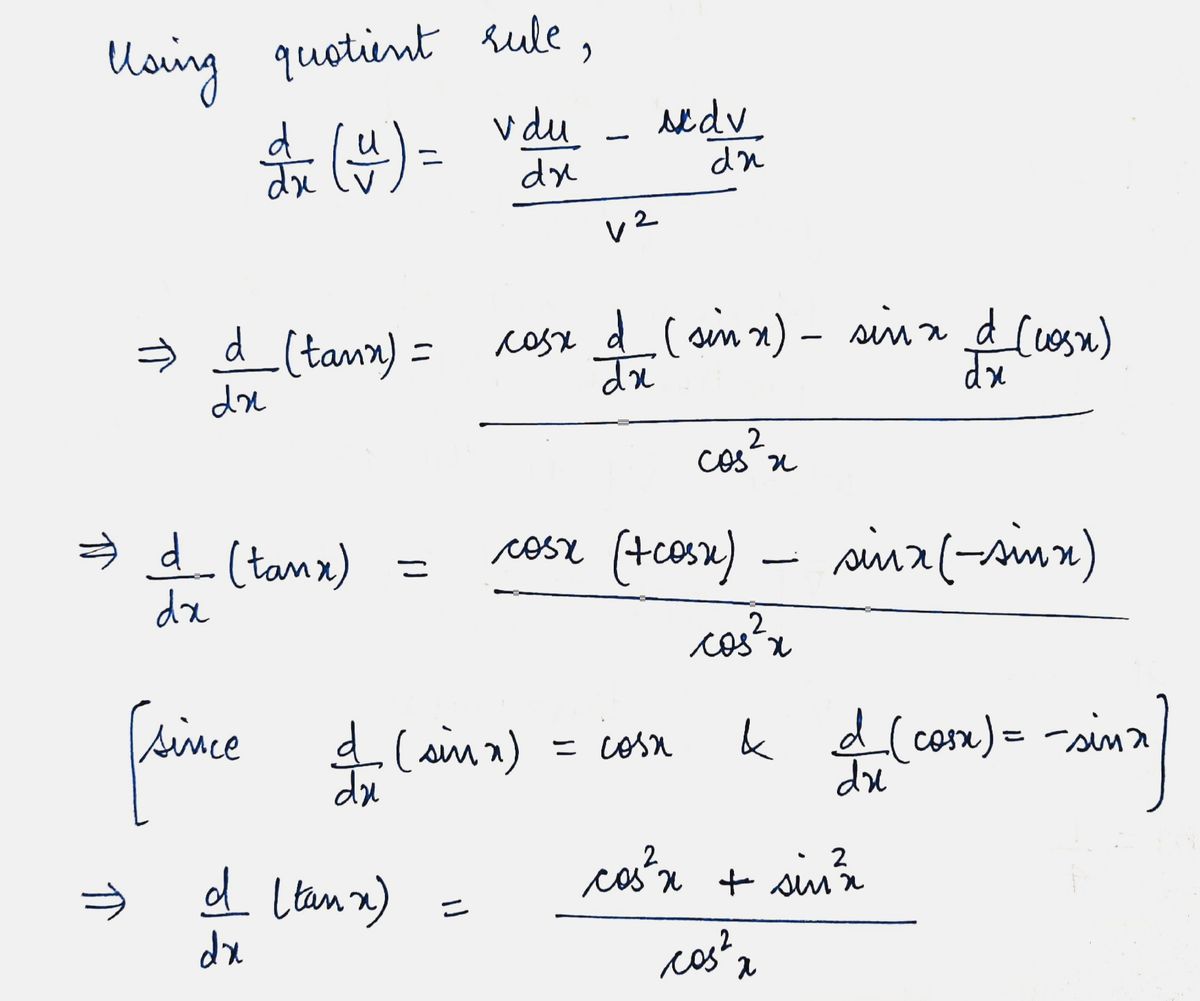 Using quotient rule,
d/dx (u/v) = (v du/dx - u dv/dx) / v²
⇒ d/dx (tanx) = (cosx d/dx (sinx) - sinx d/dx (cosx)) / cos²x
⇒ d/dx (tanx) = (cosx (+cosx) - sinx(-sinx)) / cos²x
[since d/dx (sinx) = cosx & d/dx (cosx) = -sinx]
⇒ d/dx (tanx) = (cos²x + sin²x) / cos²x